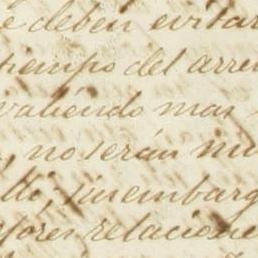 e deben evitar
tiempo del arren
valiendo mas
, no serán mu
sin embarg
relacione